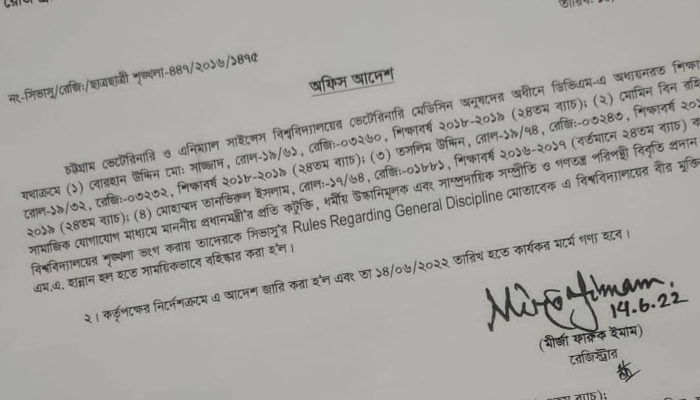 নং-সিভাসু/রেজি:/ছাত্রছাত্রী শৃঙ্খলা-৪৪৭/২০১৬/১৪৭৫
অফিস আদেশ
চট্টগ্রাম ভেটেরিনারি ও এনিম্যাল সাইন্সেস বিশ্ববিদ্যালয়ের ভেটেরিনারি মেডিসিন অনুষদের অধীনে ডিভিএম-এ অধ্যয়নরত
যথাক্রমে (১) বোরহান উদ্দিন মো: সাজ্জাদ, রোল-১৯/৬১, রেজি:-০৩২৬০, শিক্ষাবর্ষ ২০১৮-২০১৯ (২৪তম ব্যাচ); (২) মোমিন বিন
রোল-১৯/৩২, রেজি:-০৩২৩২, শিক্ষাবর্ষ ২০১৮-২০১৯ (২৪তম ব্যাচ); (৩) তসলিম উদ্দিন, রোল-১৯/১৪, রেজি:-০৩২৪৩, শিক্ষাবর্ষ
২০১৯ (২৪তম ব্যাচ); (৪) মোহাম্মদ তানভিরুল ইসলাম, রোল-১৭/৬৪, রেজি:-০১৮৮১, শিক্ষাবর্ষ ২০১৬-২০১৭ (বর্তমানে ২৪তম ব্যাচ)
সামাজিক যোগাযোগ মাধ্যমে মাননীয় প্রধানমন্ত্রী'র প্রতি কটূক্তি, ধর্মীয় উস্কানিমূলক এবং সাম্প্রদায়িক সম্প্রীতি ও গণতন্ত্র পরিপন্থী বিবৃতি প্রদান
বিশ্ববিদ্যালয়ের শৃঙ্খলা ভংগ করায় তাদেরকে সিভাসু'র Rules Regarding General Discipline মোতাবেক এ বিশ্ববিদ্যালয়ের বীর
এম.এ. হান্নান হল হতে সাময়িকভাবে বহিষ্কার করা হ'ল।
২। কর্তৃপক্ষের নির্দেশক্রমে এ আদেশ জারি করা হ'ল এবং তা ১৪/০৬/২০২২ তারিখ হতে কার্যকর মর্মে গণ্য হবে।
14.6.22
(মীর্জা ফারুক ইমাম)
রেজিস্ট্রার